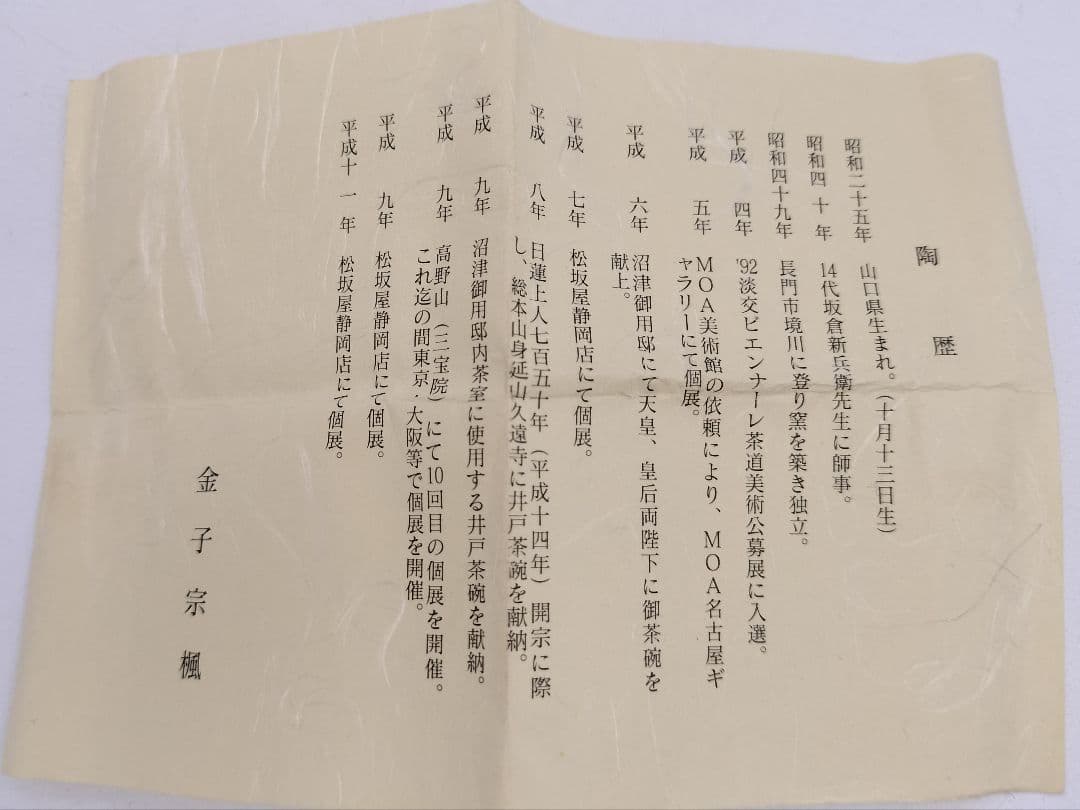 陶歴
昭和二十五年 山口県生まれ。(十月十三日生)
昭和四十年 14代坂倉新兵衛先生に師事。
昭和四十九年 長門市境川に登り窯を築き独立。
平成四年 '92淡交ビエンナーレ茶道美術公募展に入選。
平成五年 MOA美術館の依頼により、MOA名古屋ギ
ャラリーにて個展。
平成六年 沼津御用邸にて天皇、皇后両陛下に御茶碗を
献上。
平成七年 松坂屋静岡店にて個展。
平成八年 日蓮上人七百五十年(平成十四年)開宗に際
し、総本山身延山久遠寺に井戸茶碗を献納。
平成九年 沼津御用邸内茶室に使用する井戸茶碗を献納。
平成九年 高野山(三宝院)にて10回目の個展を開催。
これ迄の間東京・大阪等で個展を開催。
平成九年 松坂屋静岡店にて個展。
平成十一年 松坂屋静岡店にて個展。
金子宗楓